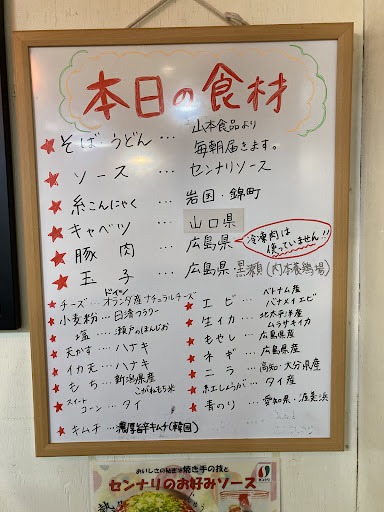 本日の食材
そば・うどん … 山本食品より
毎朝届きます。
ソース … センナリソース
糸こんにゃく … 岩国・錦町
キャベツ … 山口県
豚肉 … 広島県
冷凍肉は
使っていません!!
玉子 … 広島県 黒瀬(内本養鶏場)
チーズ … ドイツ・オランダ産ナチュラルチーズ
小麦粉 … 日清フラワー
塩 … 瀬戸のほんじお
天かす … ハナキ
イカ天 … ハナキ
もち … 新潟県産
こがねもち米
スイートコーン … タイ
キムチ … 濃厚旨辛キムチ(韓国)
エビ … ベトナム産
バナメイエビ
生イカ … 北太平洋産
ムラサキイカ
もやし … 広島県産
ネギ … 広島県産
ニラ … 高知・大分県産
紅しょうが … タイ産
青のり … 愛知県・渥美浜
おいしさの秘密は焼き手の技と
センナリのお好みソース